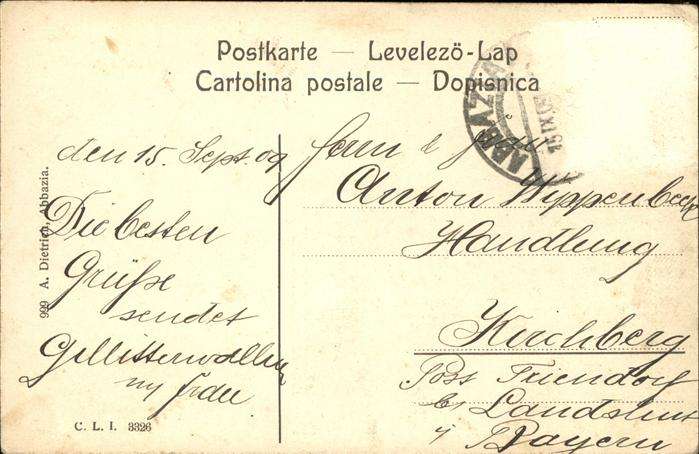 Postkarte — Levelező-Lap
Cartolina postale — Dopisnica
ABBAZIA
15 IX
den 15. Sept. 09
Die besten
Grüße
sendet
Frau
Herrn &
Anton Wippenbeck
Handlung
Kirchberg
Post
b/ Landshut
Bayern
999 A. Dietrich, Abbazia.
C. L. I. 3326